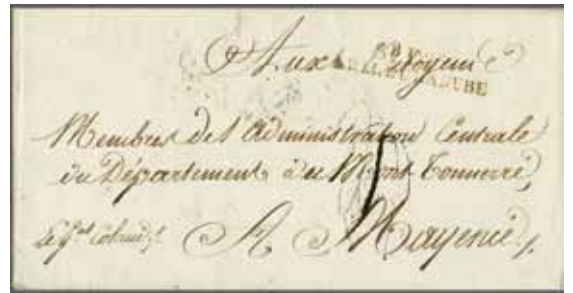 Aux Citoyens
Membres de l'Administration Centrale
du Département du Mont-Tonnerre,
A Mayence,